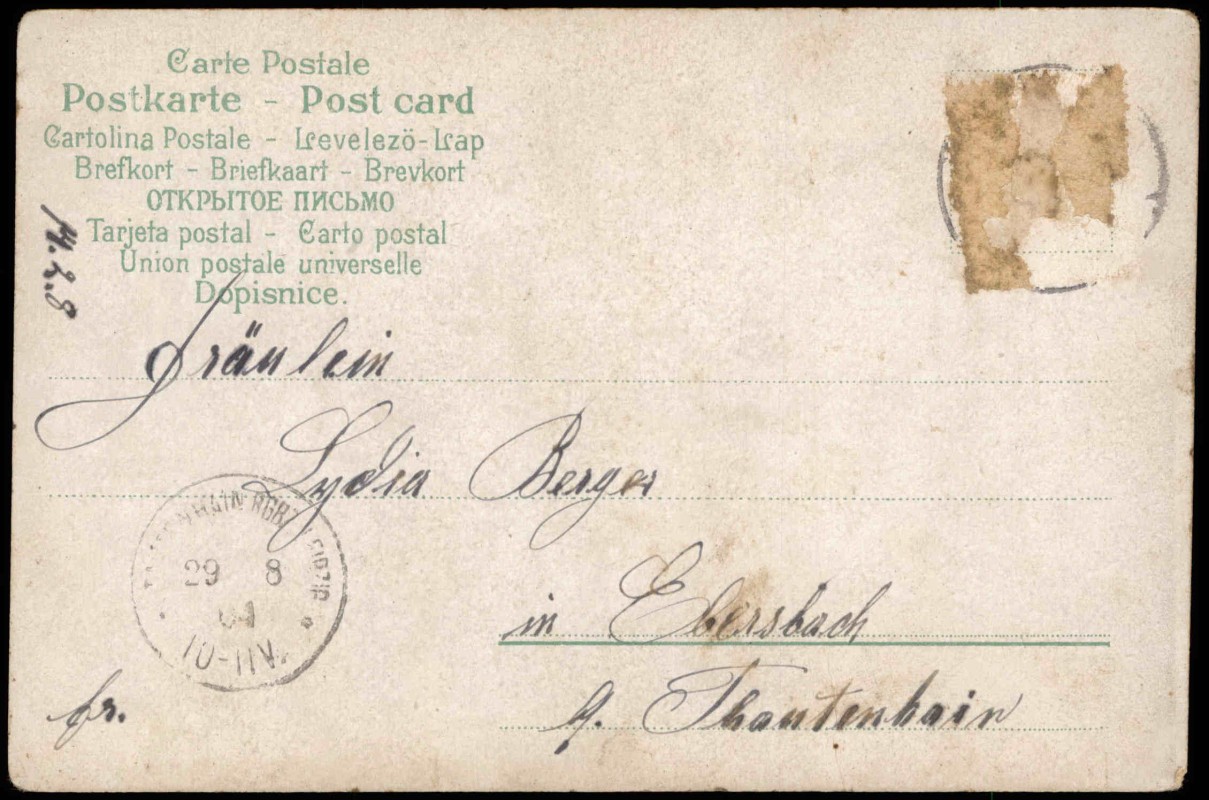 Carte Postale
Postkarte - Post card
Cartolina Postale - Levelezö-Lap
Brefkort - Briefkaart - Brevkort
ОТКРЫТОЕ ПИСЬМО
Tarjeta postal - Carto postal
Union postale universelle
Dopisnice.
Fräulein
Lydia Berger
HAIN RGBZ LEIPZIG
29 8
04
10-11V.
in Ebersbach
fr.
q. Thautenhain